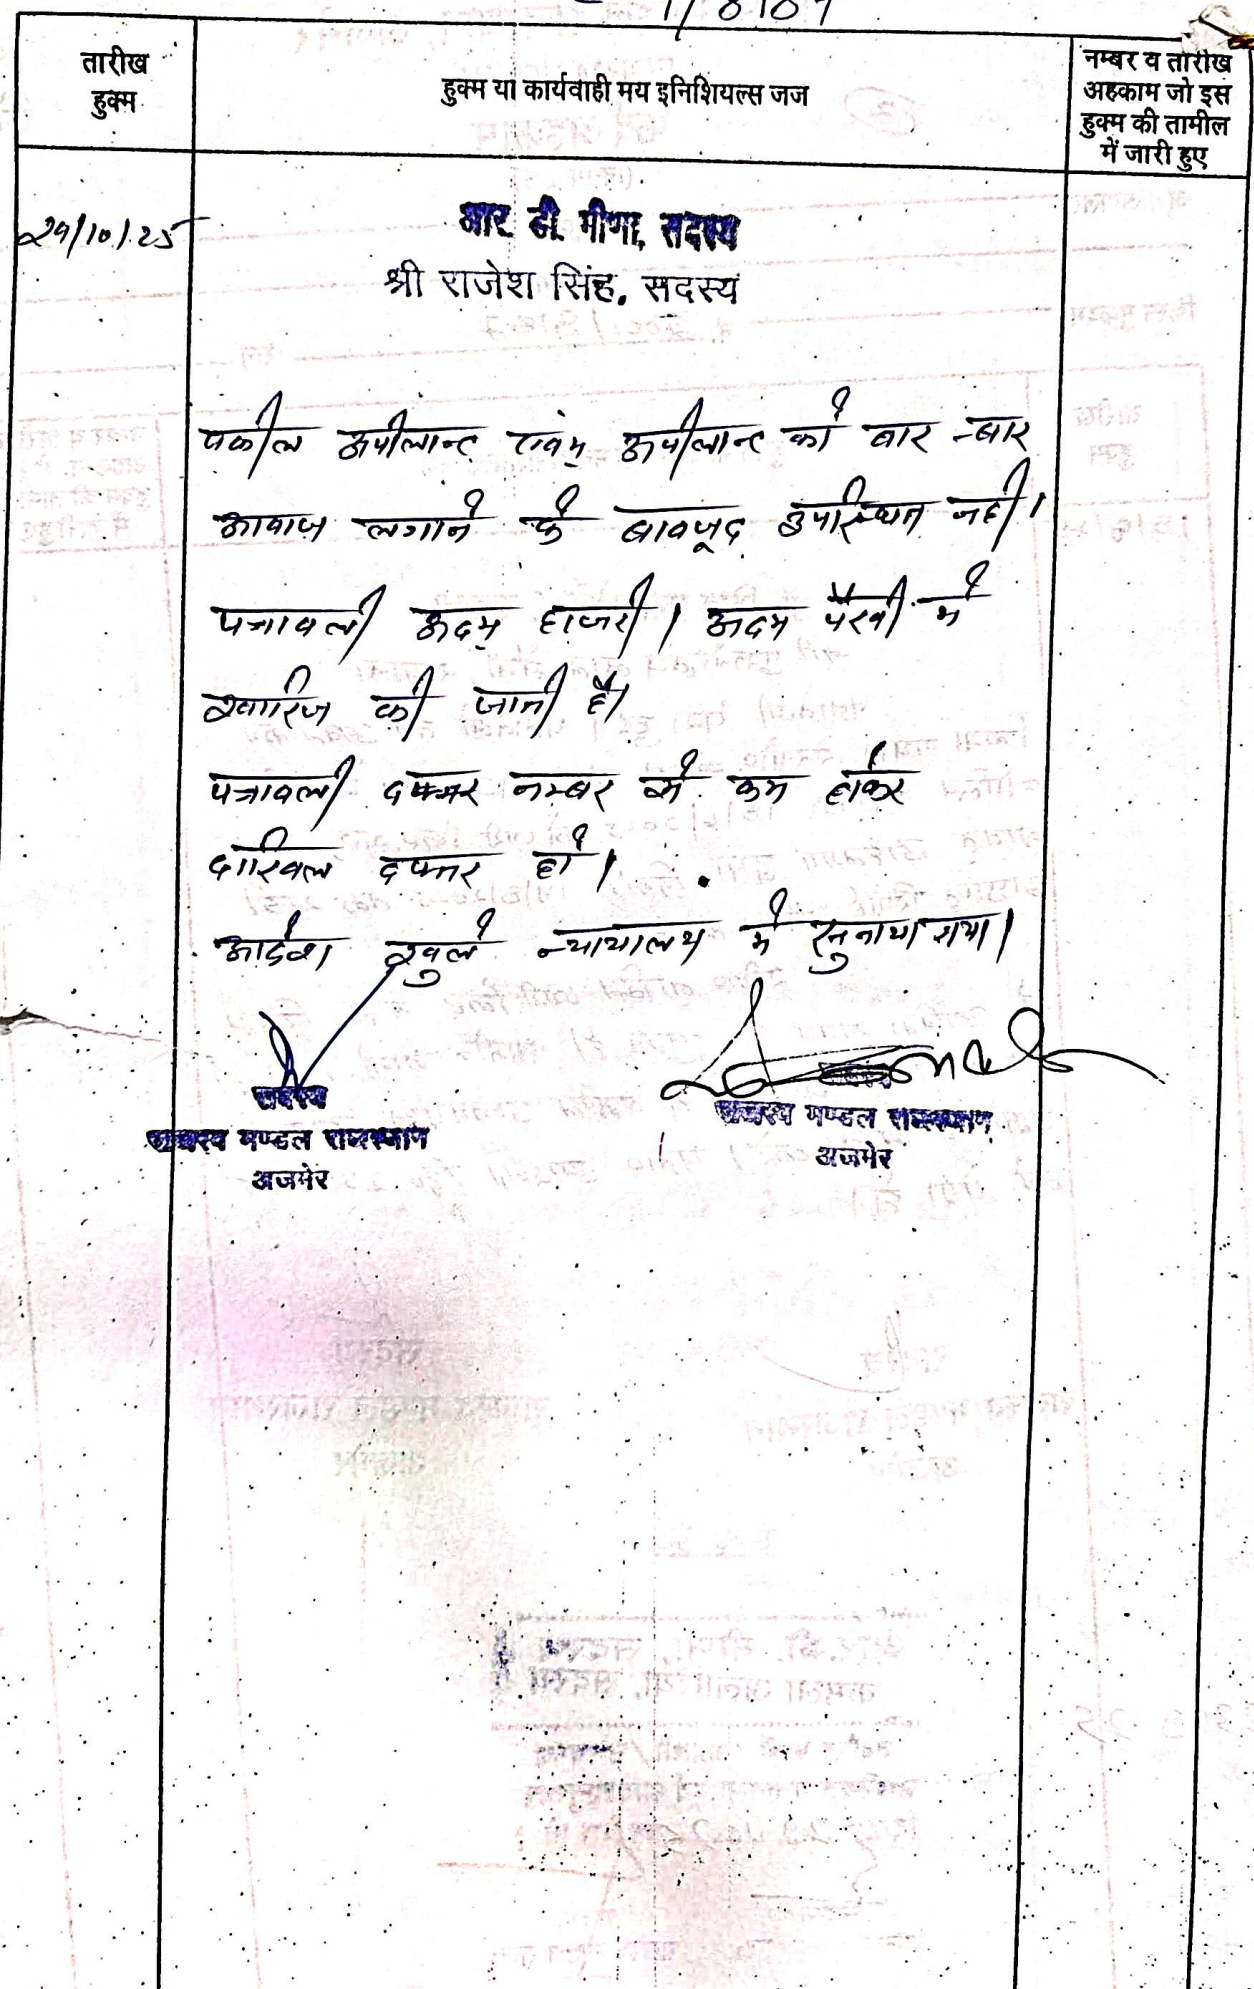 तारीख
हुक्म
हुक्म या कार्यवाही मय इनिशियल्स जज
नम्बर व तारीख
अहकाम जो इस
हुक्म की तामील
में जारी हुए
29/10/25
आर. डी. मीणा, सदस्य
श्री राजेश सिंह, सदस्य
वकील अपीलान्ट एवम् अपीलान्ट को बार-बार
आवाज लगाने के बावजूद उपस्थित नही।
पत्रावली अदम् हाजरी / अदम पैरवी में
खारिज की जाती है।
पत्रावली दफ्तर नम्बर से कम होकर
दाखिल दफ्तर हो।
आदेश खुले न्यायालय में सुनाया गया।
सदस्य
राजस्व मण्डल राजस्थान
अजमेर
सदस्य
राजस्व मण्डल राजस्थान
अजमेर